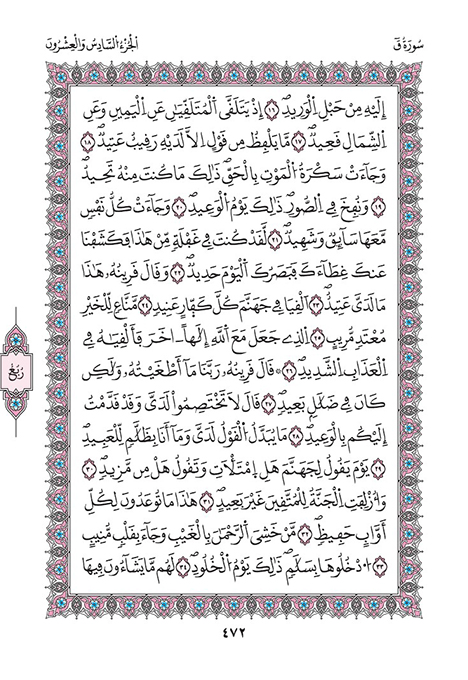 سُورَةُ قٓ
اَلْجُزْءُ السَّادِسُ وَالْعِشْرُونَ
إِلَيْهِ مِنْ حَبْلِ اِلْوَرِيدِۖ ١٦ إِذْ يَتَلَقَّى اَلْمُتَلَقِّيَٰنِ عَنِ اِلْيَمِينِ وَعَنِ
اِلشِّمَالِ قَعِيدٌۖ ١٧ مَّا يَلْفِظُ مِن قَوْلٍ اِلَّا لَدَيْهِ رَقِيبٌ عَتِيدٌۖ ١٨
وَجَآءَتْ سَكْرَةُ اُلْمَوْتِ بِالْحَقِّۖ ذَٰلِكَ مَا كُنتَ مِنْهُ تَحِيدُۖ
١٩ وَنُفِخَ فِے اِلصُّورِۖ ذَٰلِكَ يَوْمُ اُلْوَعِيدِۖ ٢٠ وَجَآءَتْ كُلُّ نَفْسٍ
مَّعَهَا سَآئِقٌ وَشَهِيدٌۖ ٢١ لَّقَدْ كُنتَ فِے غَفْلَةٍ مِّنْ هَٰذَا فَكَشَفْنَا
عَنكَ غِطَآءَكَ فَبَصَرُكَ اَلْيَوْمَ حَدِيدٌۖ ٢٢ وَقَالَ قَرِينُهُۥ هَٰذَا
مَا لَدَىَّ عَتِيدٌۖ ٢٣ اَلْقِيَا فِے جَهَنَّمَ كُلَّ كَفَّارٍ عَنِيدٍ ٢٤ مَّنَّاعٍ لِّلْخَيْرِ
مُعْتَدٍ مُّرِيبٍ ٢٥ اِلذِے جَعَلَ مَعَ اَللَّهِ إِلَٰهاً اٰخَرَ فَأَلْقِيَٰهُ فِے
اِلْعَذَابِ اِلشَّدِيدِۖ ٢٦ قَالَ قَرِينُهُۥ رَبَّنَا مَآ أَطْغَيْتُهُۥ وَلَٰكِن
كَانَ فِے ضَلَٰلٍ بَعِيدٍۖ ٢٧ قَالَ لَا تَخْتَصِمُواْ لَدَىَّ وَقَدْ قَدَّمْتُ
إِلَيْكُم بِالْوَعِيدِۖ ٢٨ مَا يُبَدَّلُ اُلْقَوْلُ لَدَىَّ وَمَآ أَنَا بِظَلَّٰمٍ لِّلْعَبِيدِۖ
٢٩ يَوْمَ يَقُولُ لِجَهَنَّمَ هَلِ اِمْتَلَأْتِ وَتَقُولُ هَلْ مِن مَّزِيدٍۖ ٣٠
وَأُزْلِفَتِ اِلْجَنَّةُ لِلْمُتَّقِينَ غَيْرَ بَعِيدٍۖ ٣١ هَٰذَا مَا تُوعَدُونَ لِكُلِّ
أَوَّابٍ حَفِيظٍۖ ٣٢ مَّنْ خَشِيَ اَلرَّحْمَٰنَ بِالْغَيْبِ وَجَآءَ بِقَلْبٍ مُّنِيبٍ
٣٣ اُدْخُلُوهَا بِسَلَٰمٍۖ ذَٰلِكَ يَوْمُ اُلْخُلُودِۖ ٣٤ لَهُم مَّا يَشَآءُونَ فِيهَا
رُبُع
٤٧٢